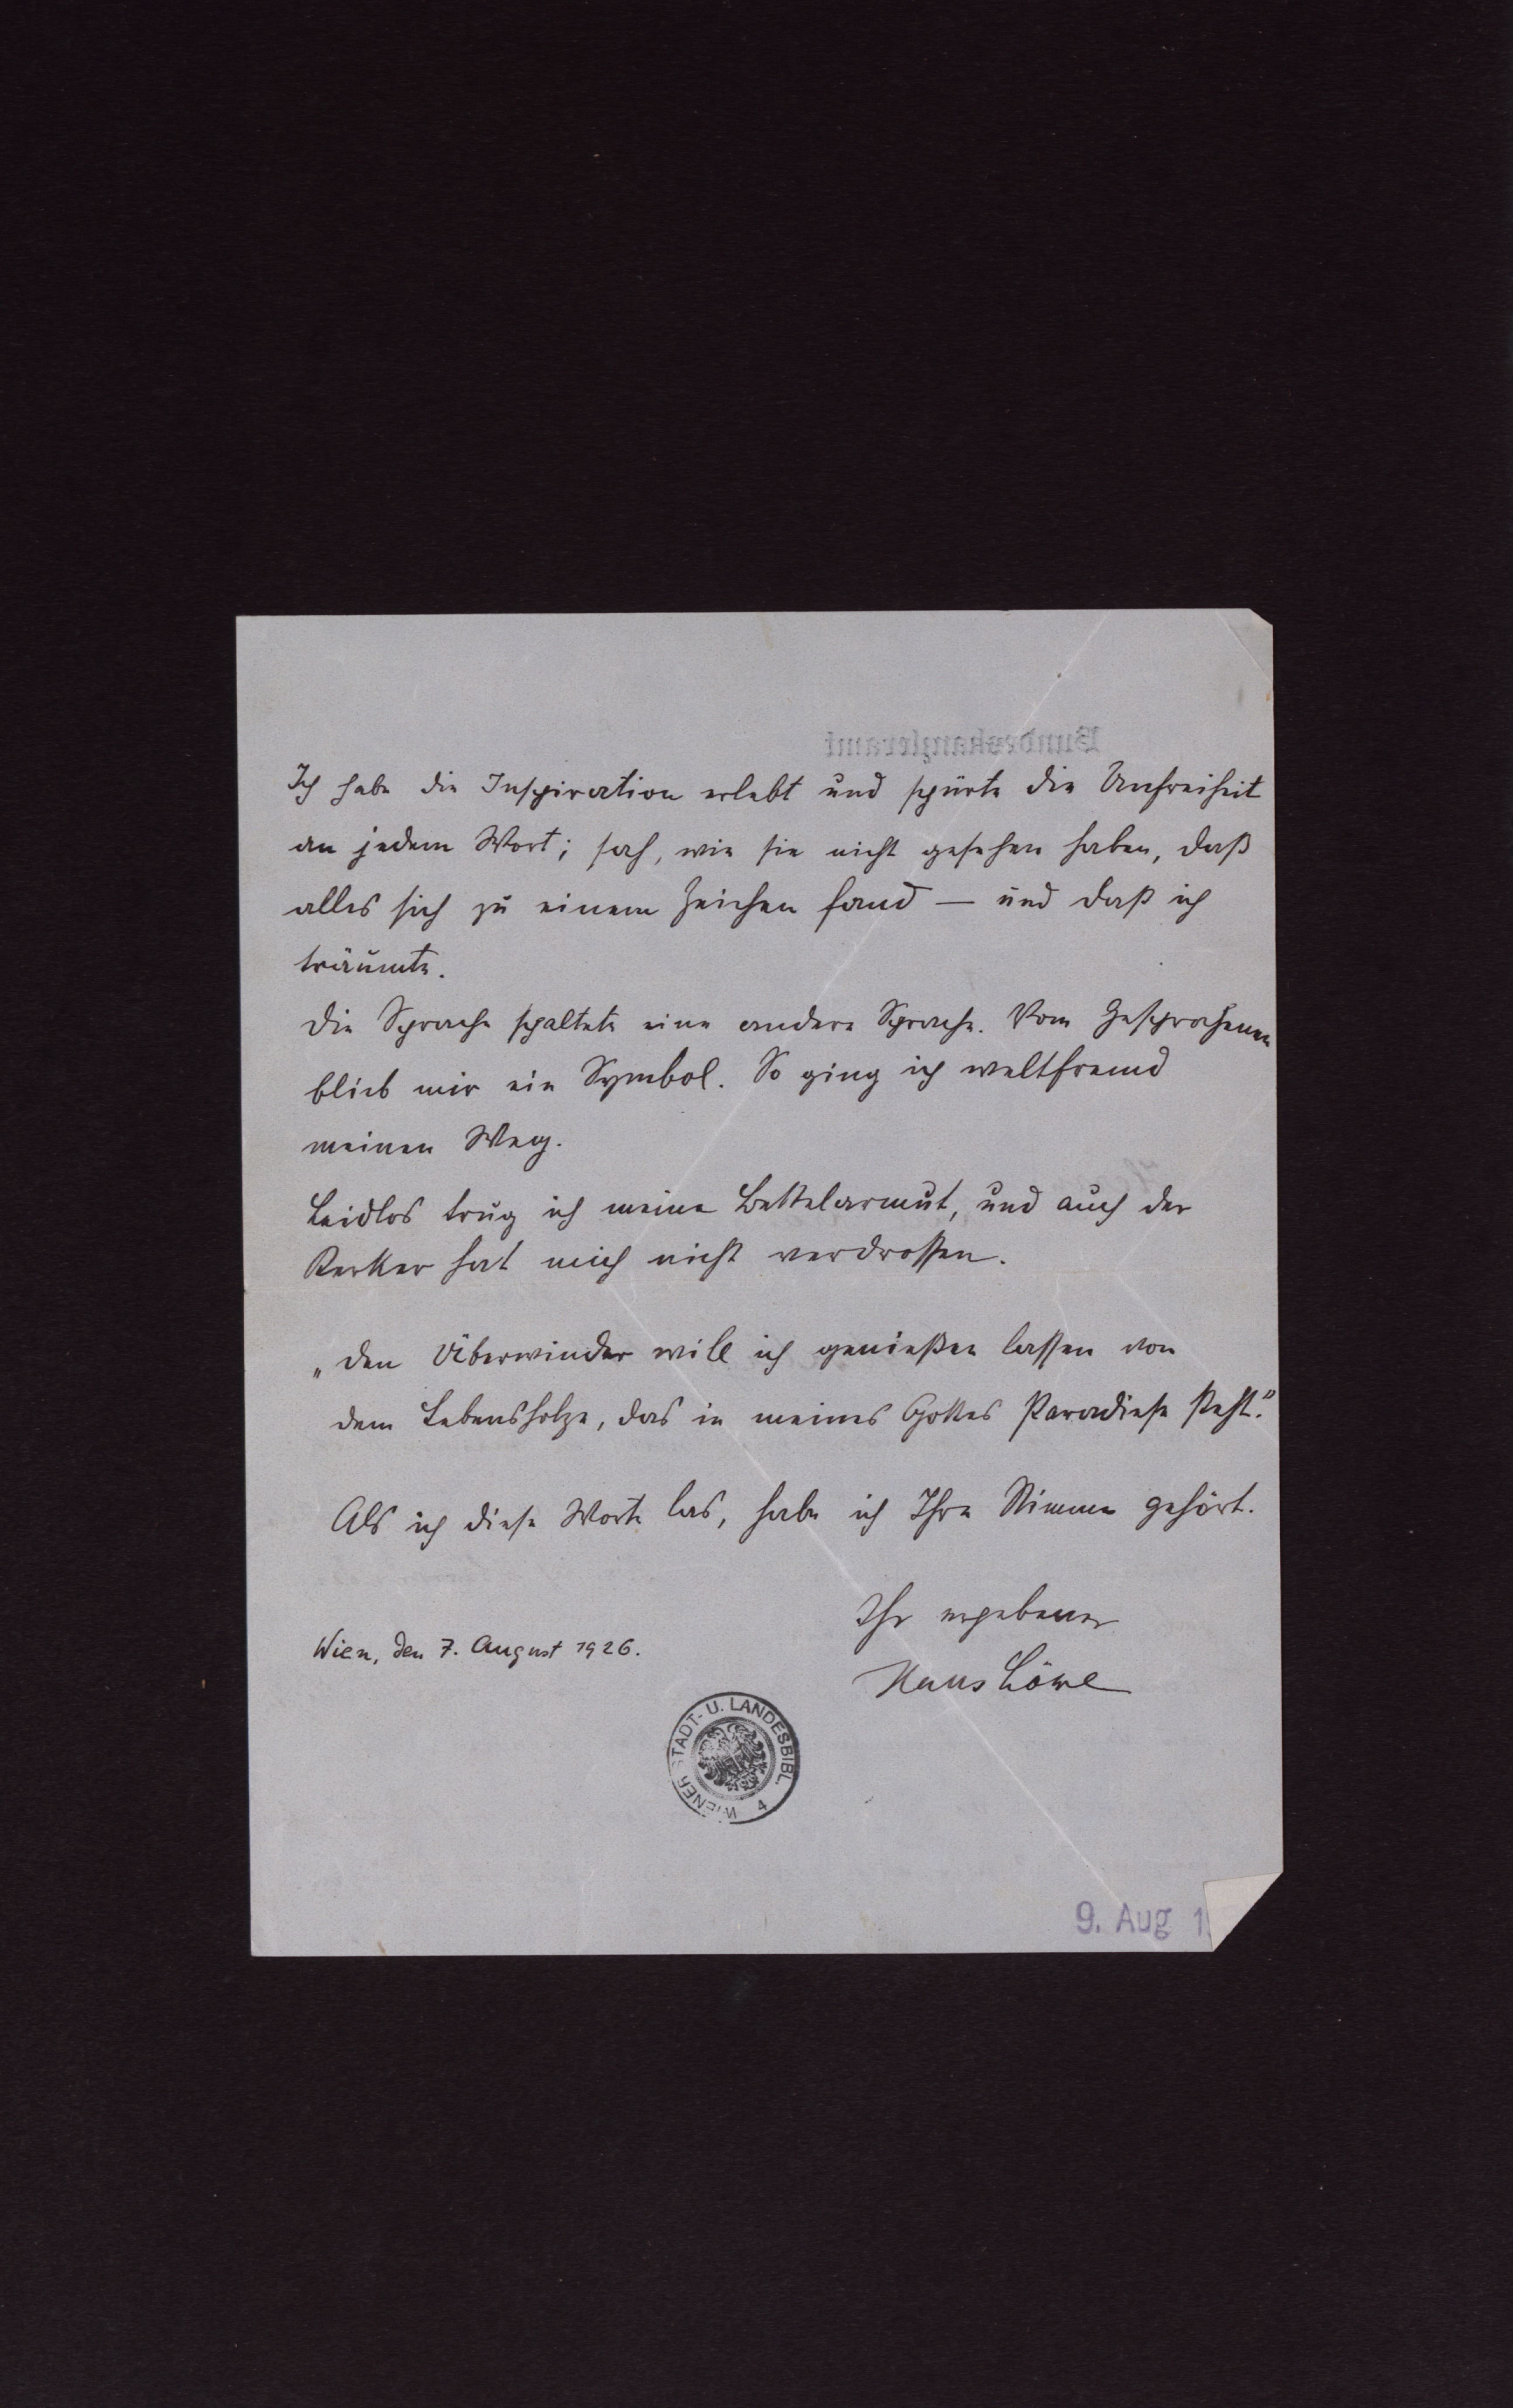 Bundeskanzleramt
Ich habe die Inspiration erlebt und spürte die Unfreiheit
an jedem Wort; sah, wie sie nicht gesehen haben, daß
alles sich zu einem Zeichen fand — und daß ich
träumte.
Die Sprache spaltete eine andere Sprache. Vom Gesprochenen
blieb mir ein Symbol. So ging ich weltfremd
meinen Weg.
Leidlos trug ich meine Bettelarmut, und auch der
Kerker hat mich nicht verdrossen.
„Den Überwinder will ich genießen lassen von
dem Lebensholze, das in meines Gottes Paradiese steht.“
Als ich diese Worte las, habe ich Ihre Stimme gehört.
Ihr ergebener
Wien, den 7. August 1926.
Hans Löwe
WIENER STADT- U. LANDESBIBL. 4
9. Aug 1